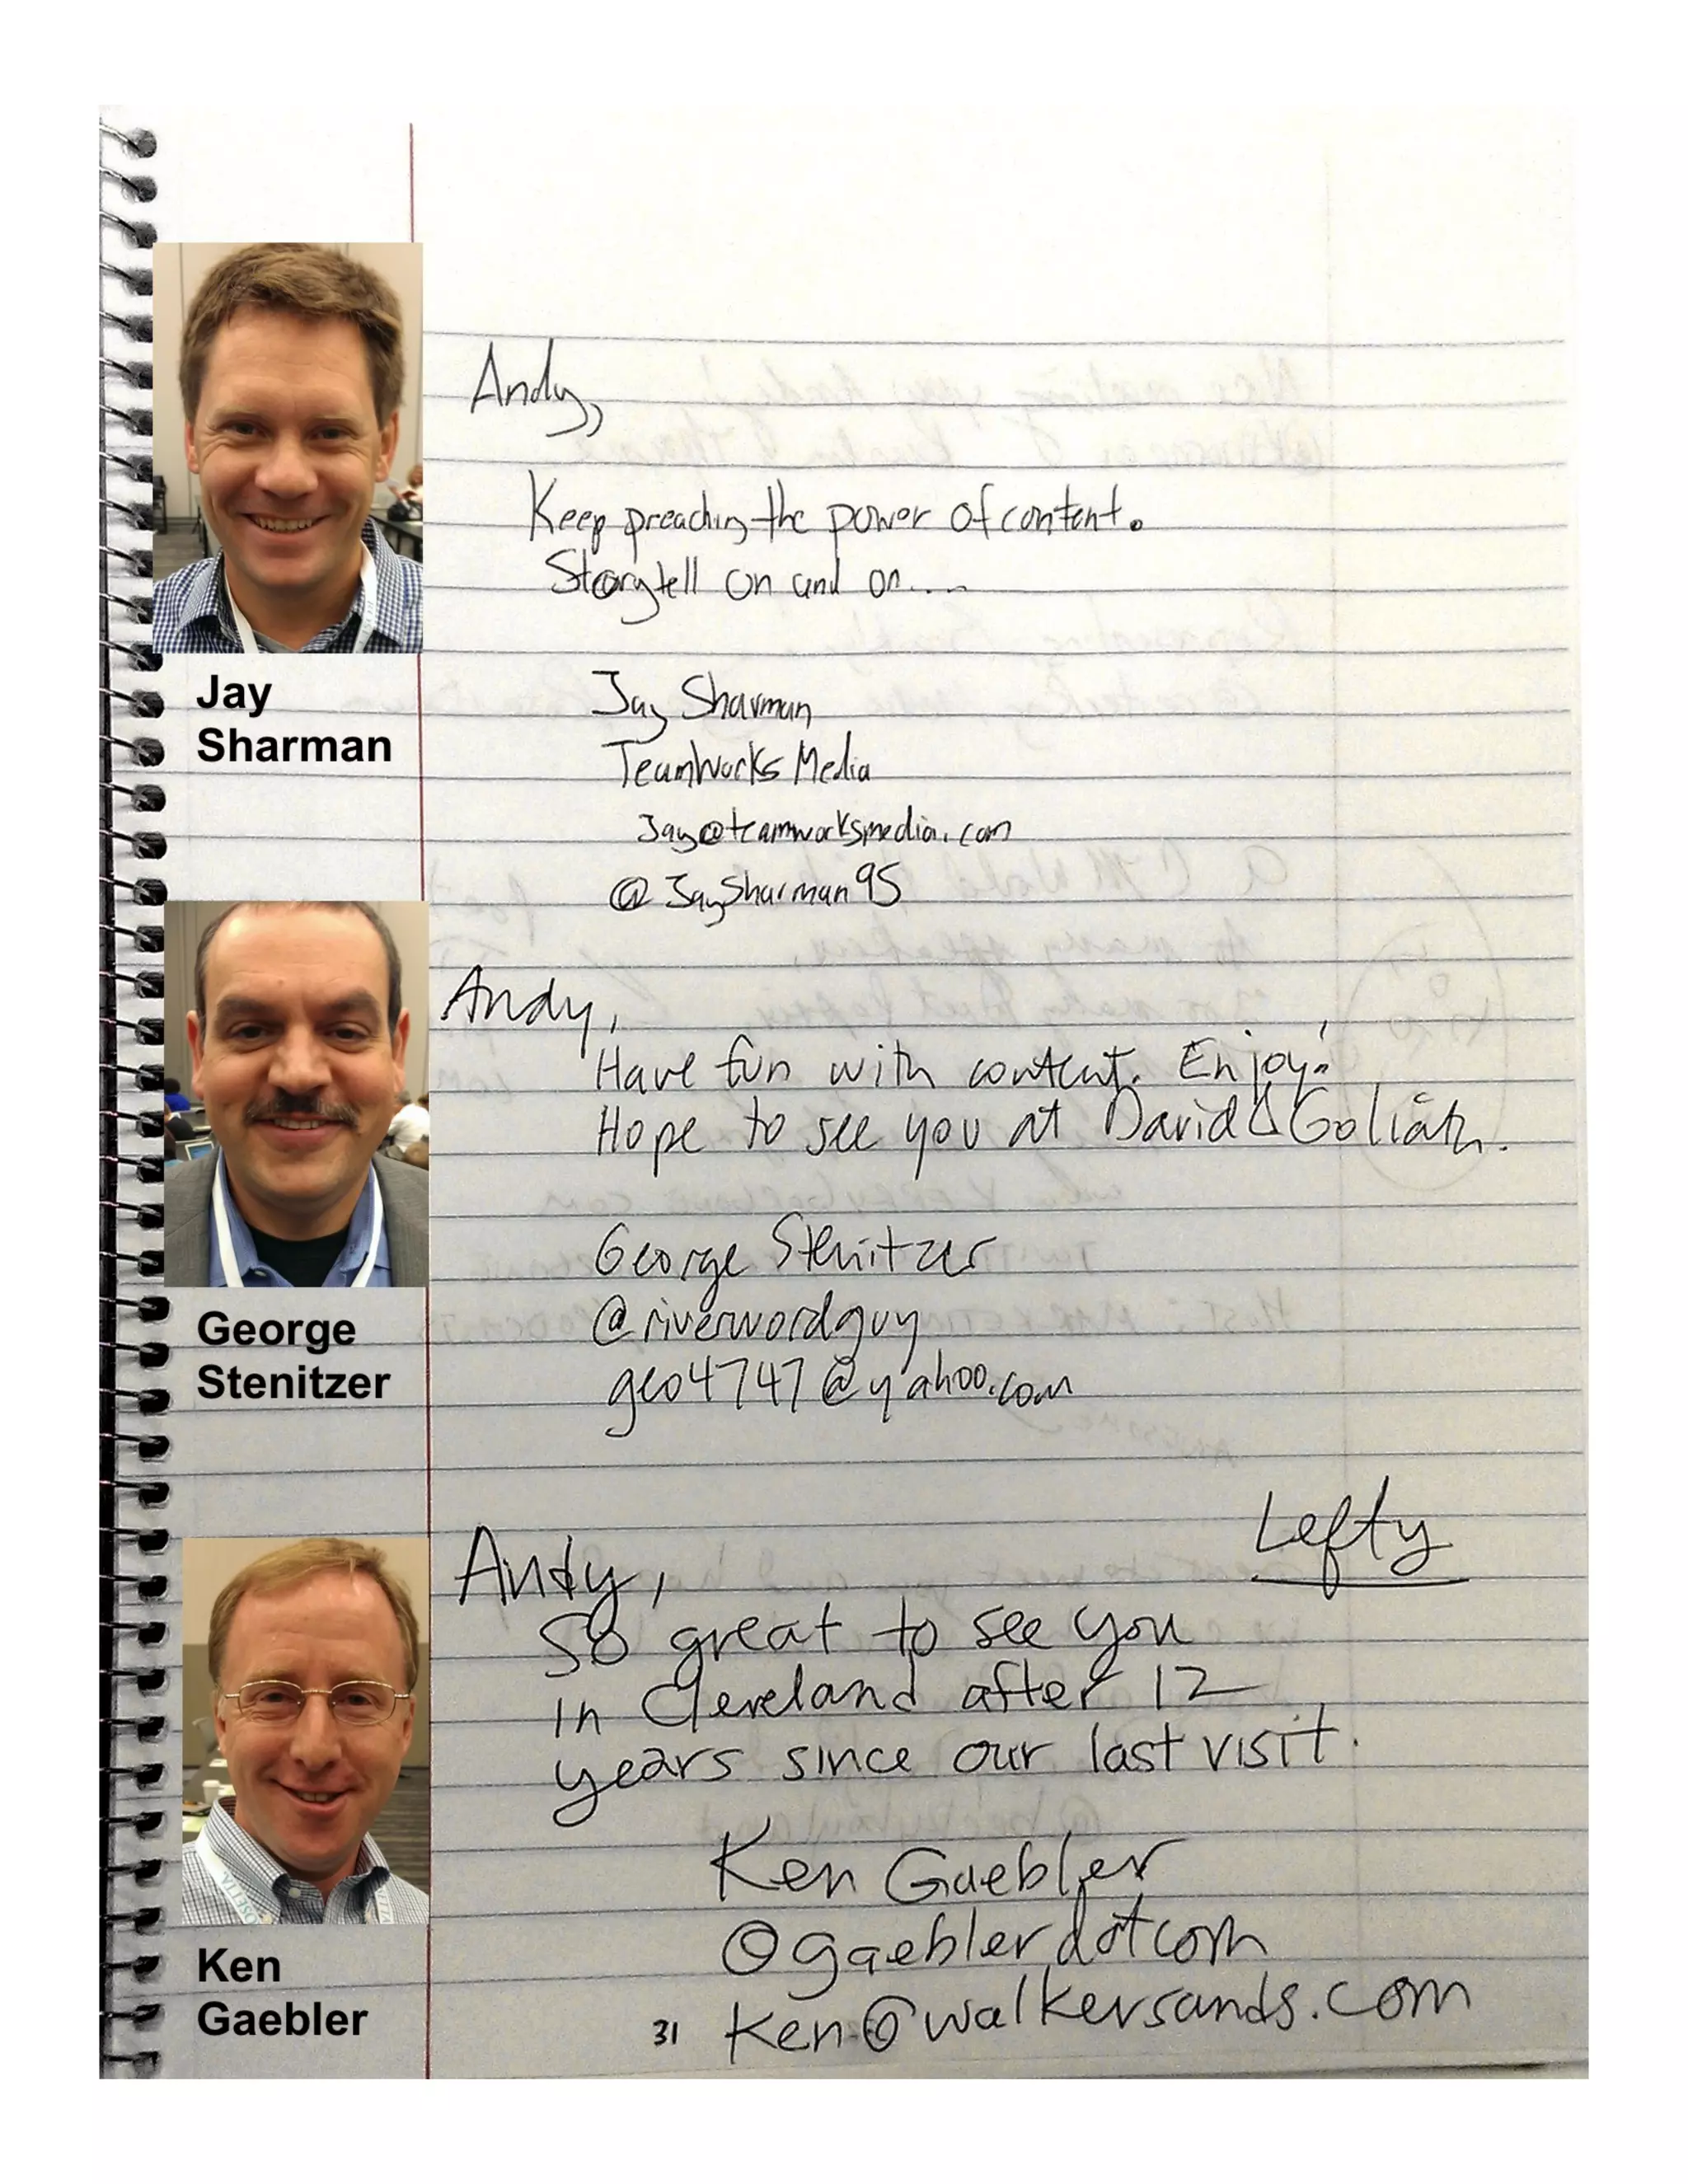 Andy,
Keep preaching the power of content.
Storytell on and on....
Jay Sharman
TeamWorks Media
Jay@teamworksmedia.com
@JaySharman95
Jay
Sharman
Andy,
Have fun with content. Enjoy!
Hope to see you at David & Goliath.
George Stenitzer
@riverwordguy
geo4747@yahoo.com
George
Stenitzer
Lefty
Andy,
So great to see you
in Cleveland after 12
years since our last visit.
Ken Gaebler
@gaeblerdotcom
Ken@walkersands.com
Ken
Gaebler
31